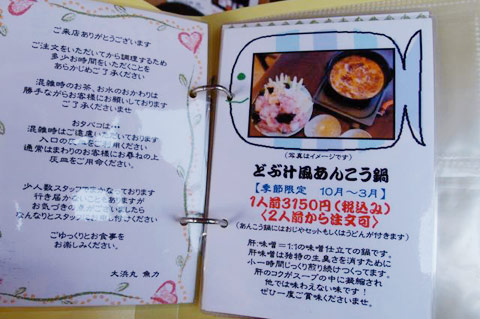 ご来店ありがとうございます
ご注文をいただいてから調理するため
多少お時間をいただくことを
あらかじめご了承ください
混雑時のお茶、お水のおかわりは
勝手ながらお客様にお願いしております
ご了承くださいませ
おタバコは…
混雑時はご遠慮いただいております
入口の をご利用ください
通常はまわりのお客様にお尋ねの上
灰皿をご用命ください。
少人数スタッフ ないており
行き届かない ざいますが
お気づきの ましたら
なんなりとスタッフ 付けください
ごゆっくりとお食事を
お楽しみください。
大浜丸 魚力
(写真はイメージです)
どぶ汁風あんこう鍋
【季節限定 10月～3月】
1人前3150円(税込み)
〈2人前から注文可〉
(あんこう鍋にはおじやセットもしくはうどんが付きます)
肝:味噌=1:1の味噌仕立ての鍋です。
肝味噌は独特の生臭さを消すために
小一時間じっくり煎り続けつくってます。
肝のコクがスープの中に凝縮され
他では味わえない味です!
ぜひ一度ご賞味くださいませ。